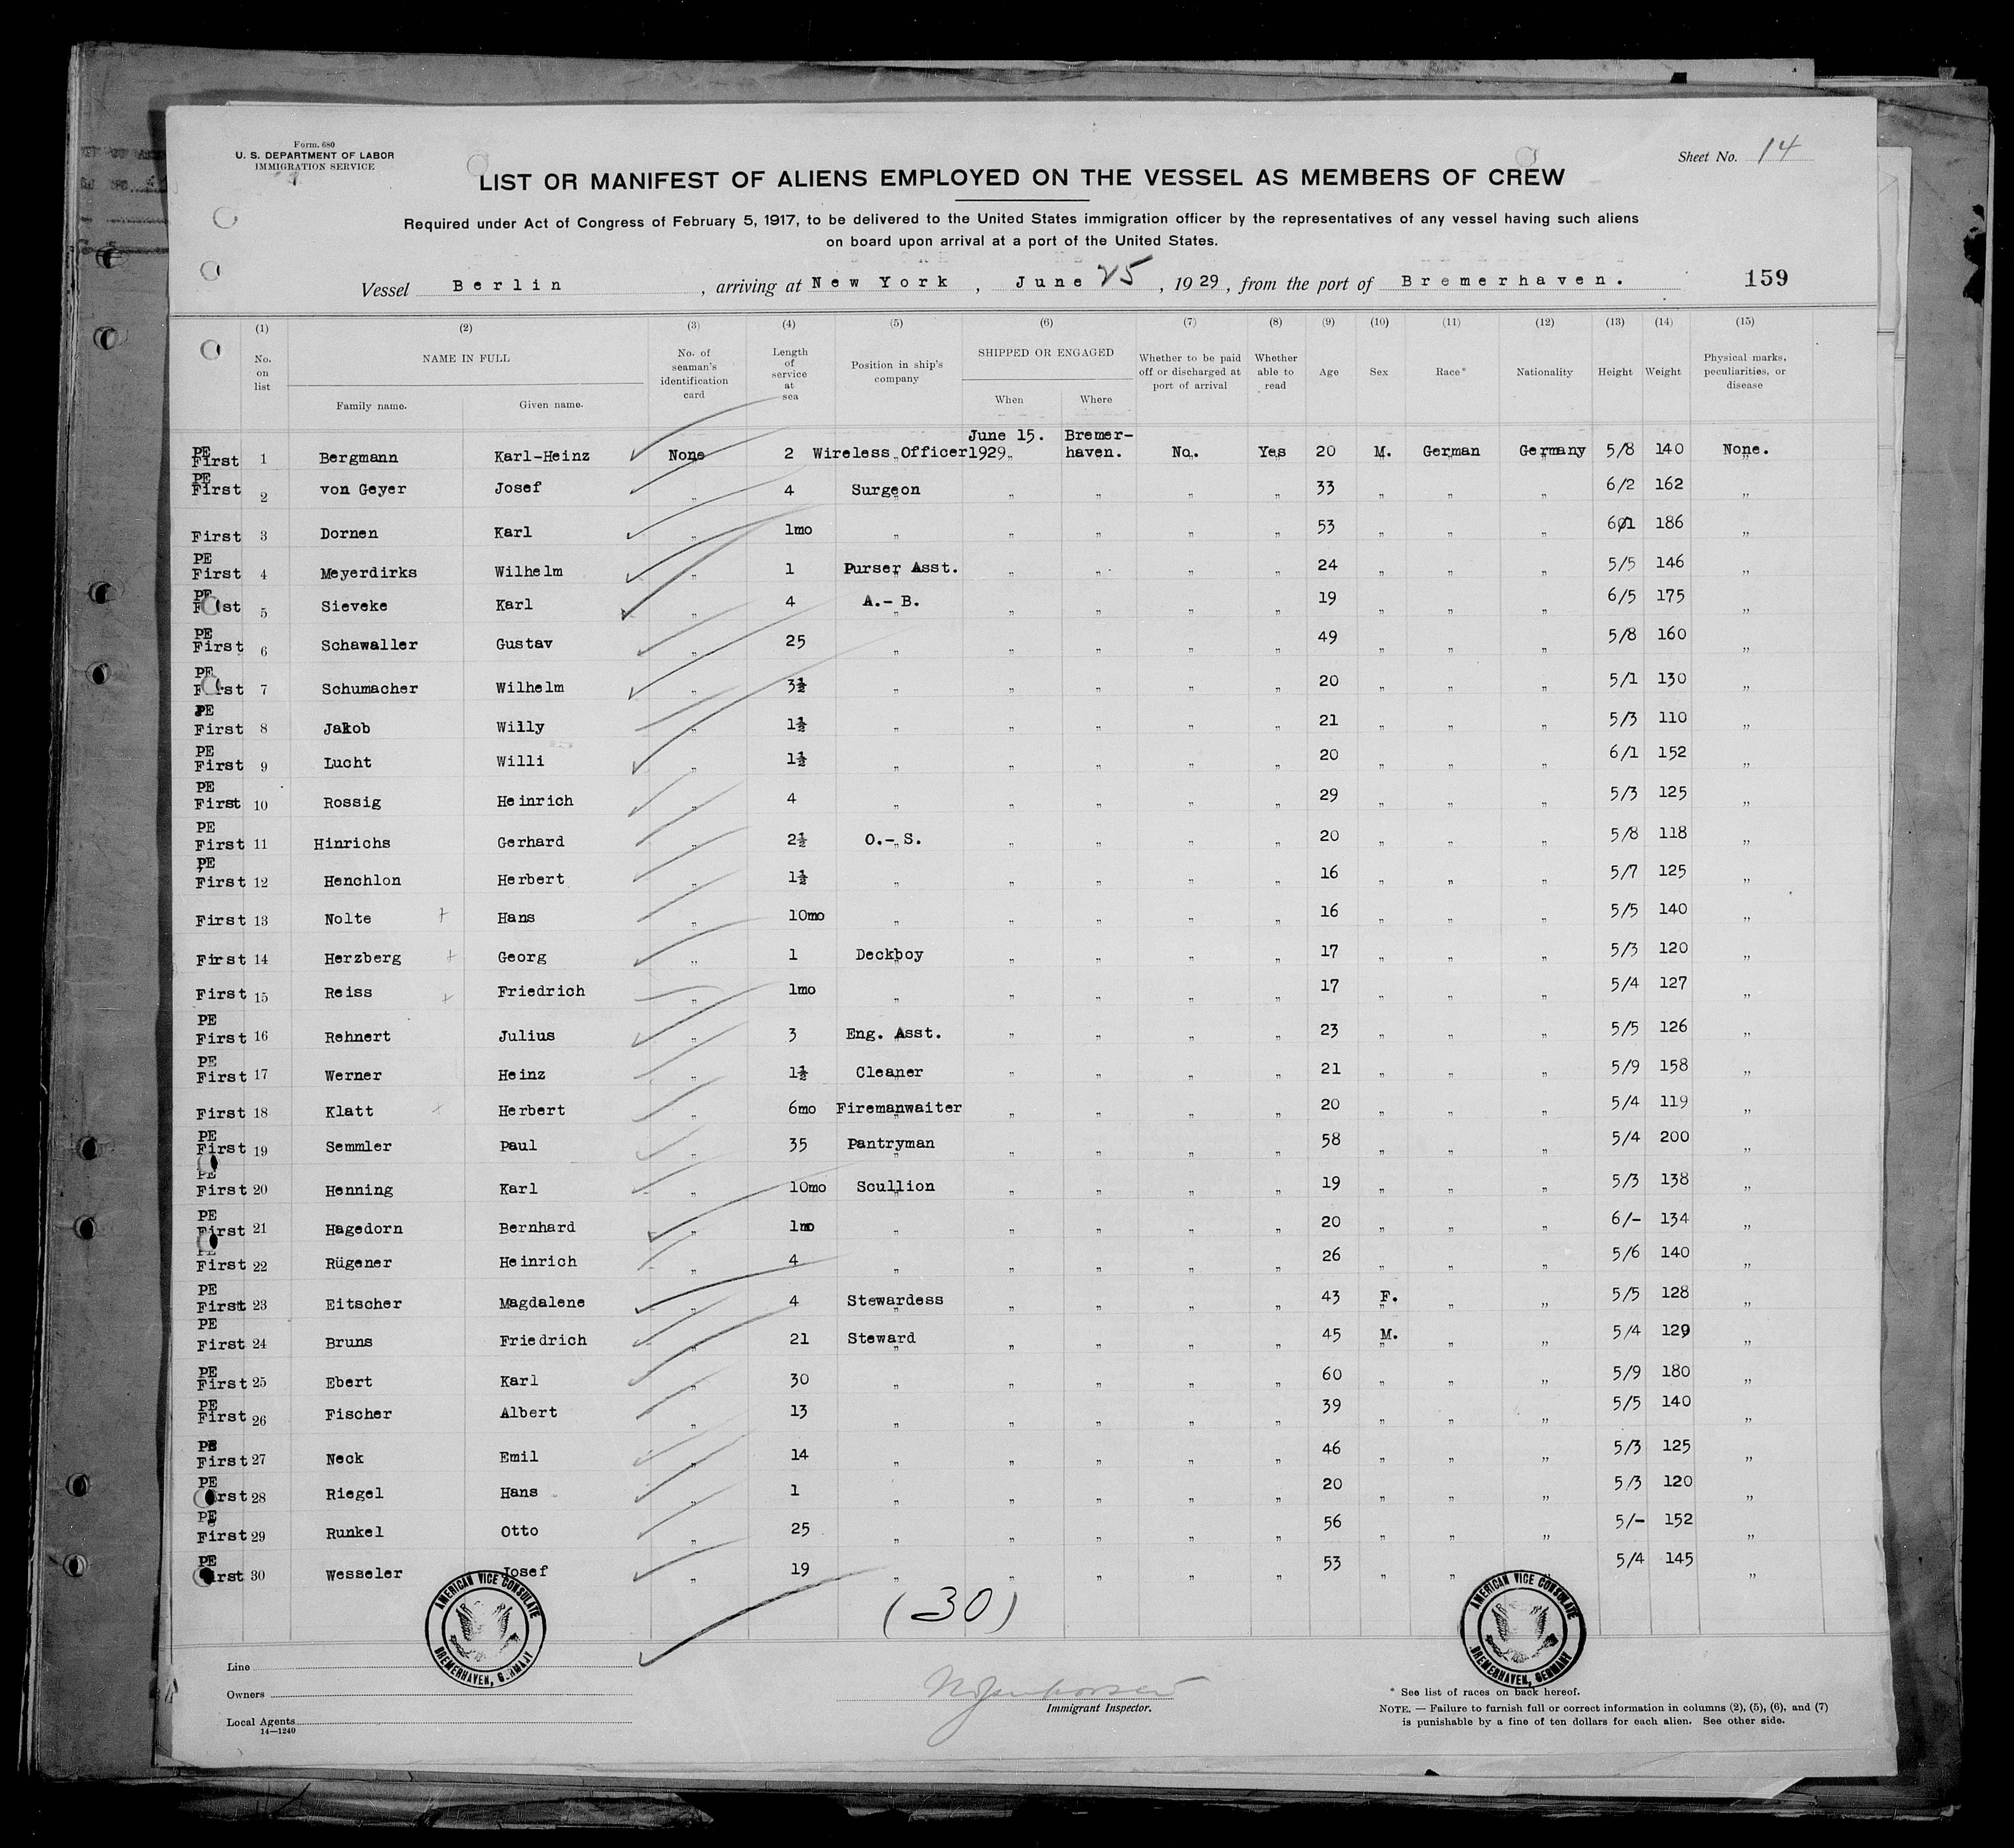 Form. 680
U. S. DEPARTMENT OF LABOR
IMMIGRATION SERVICE
Sheet No. 14
LIST OR MANIFEST OF ALIENS EMPLOYED ON THE VESSEL AS MEMBERS OF CREW
Required under Act of Congress of February 5, 1917, to be delivered to the United States immigration officer by the representatives of any vessel having such aliens
on board upon arrival at a port of the United States.
Vessel Berlin, arriving at New York, June 25, 1929, from the port of Bremerhaven. 159
(1) (2) (3) (4) (5) (6) (7) (8) (9) (10) (11) (12) (13) (14) (15)
No. on list NAME IN FULL Family name. Given name. No. of seaman's identification card Length of service at sea Position in ship's company SHIPPED OR ENGAGED When Where Whether to be paid off or discharged at port of arrival Whether able to read Age Sex Race* Nationality Height Weight Physical marks, peculiarities, or disease
PE First 1 Bergmann Karl-Heinz None 2 Wireless Officer June 15. 1929 Bremer-haven. No. Yes 20 M. German Germany 5/8 140 None.
PE First 2 von Geyer Josef „ 4 Surgeon „ „ „ „ 33 „ „ „ 6/2 162 „
First 3 Dornen Karl „ 1mo „ „ „ „ „ 53 „ „ „ 6/1 186 „
PE First 4 Meyerdirks Wilhelm „ 1 Purser Asst. „ „ „ „ 24 „ „ „ 5/5 146 „
PE First 5 Sieveke Karl „ 4 A.- B. „ „ „ „ 19 „ „ „ 6/5 175 „
PE First 6 Schawaller Gustav „ 25 „ „ „ „ „ 49 „ „ „ 5/8 160 „
PE First 7 Schumacher Wilhelm „ 3½ „ „ „ „ „ 20 „ „ „ 5/1 130 „
PE First 8 Jakob Willy „ 1½ „ „ „ „ „ 21 „ „ „ 5/3 110 „
PE First 9 Lucht Willi „ 1½ „ „ „ „ „ 20 „ „ „ 6/1 152 „
PE First 10 Rossig Heinrich „ 4 „ „ „ „ „ 29 „ „ „ 5/3 125 „
PE First 11 Hinrichs Gerhard „ 2½ O.- S. „ „ „ „ 20 „ „ „ 5/8 118 „
PE First 12 Henchlon Herbert „ 1½ „ „ „ „ „ 16 „ „ „ 5/7 125 „
First 13 Nolte + Hans „ 10mo „ „ „ „ „ 16 „ „ „ 5/5 140 „
First 14 Herzberg + Georg „ 1 Deckboy „ „ „ „ 17 „ „ „ 5/3 120 „
First 15 Reiss + Friedrich „ 1mo „ „ „ „ „ 17 „ „ „ 5/4 127 „
PE First 16 Rehnert Julius „ 3 Eng. Asst. „ „ „ „ 23 „ „ „ 5/5 126 „
PE First 17 Werner Heinz „ 1½ Cleaner „ „ „ „ 21 „ „ „ 5/9 158 „
First 18 Klatt + Herbert „ 6mo Firemanwaiter „ „ „ „ 20 „ „ „ 5/4 119 „
PE First 19 Semmler Paul „ 35 Pantryman „ „ „ „ 58 „ „ „ 5/4 200 „
PE First 20 Henning Karl „ 10mo Scullion „ „ „ „ 19 „ „ „ 5/3 138 „
PE First 21 Hagedorn Bernhard „ 1mo „ „ „ „ „ 20 „ „ „ 6/- 134 „
PE First 22 Rügener Heinrich „ 4 „ „ „ „ „ 26 „ „ „ 5/6 140 „
PE First 23 Eitscher Magdalene „ 4 Stewardess „ „ „ „ 43 F. „ „ 5/5 128 „
PE First 24 Bruns Friedrich „ 21 Steward „ „ „ „ 45 M. „ „ 5/4 129 „
PE First 25 Ebert Karl „ 30 „ „ „ „ „ 60 „ „ „ 5/9 180 „
PE First 26 Fischer Albert „ 13 „ „ „ „ „ 39 „ „ „ 5/5 140 „
PE First 27 Neck Emil „ 14 „ „ „ „ „ 46 „ „ „ 5/3 125 „
PE First 28 Riegel Hans „ 1 „ „ „ „ „ 20 „ „ „ 5/3 120 „
PE First 29 Runkel Otto „ 25 „ „ „ „ „ 56 „ „ „ 5/- 152 „
PE First 30 Wesseler Josef „ 19 „ „ „ „ „ 53 „ „ „ 5/4 145 „
(30)
AMERICAN VICE CONSULATE BREMERHAVEN, GERMANY
AMERICAN VICE CONSULATE BREMERHAVEN, GERMANY
Line
Owners
Local Agents
14—1240
Immigrant Inspector.
* See list of races on back hereof.
NOTE. — Failure to furnish full or correct information in columns (2), (5), (6), and (7)
is punishable by a fine of ten dollars for each alien. See other side.